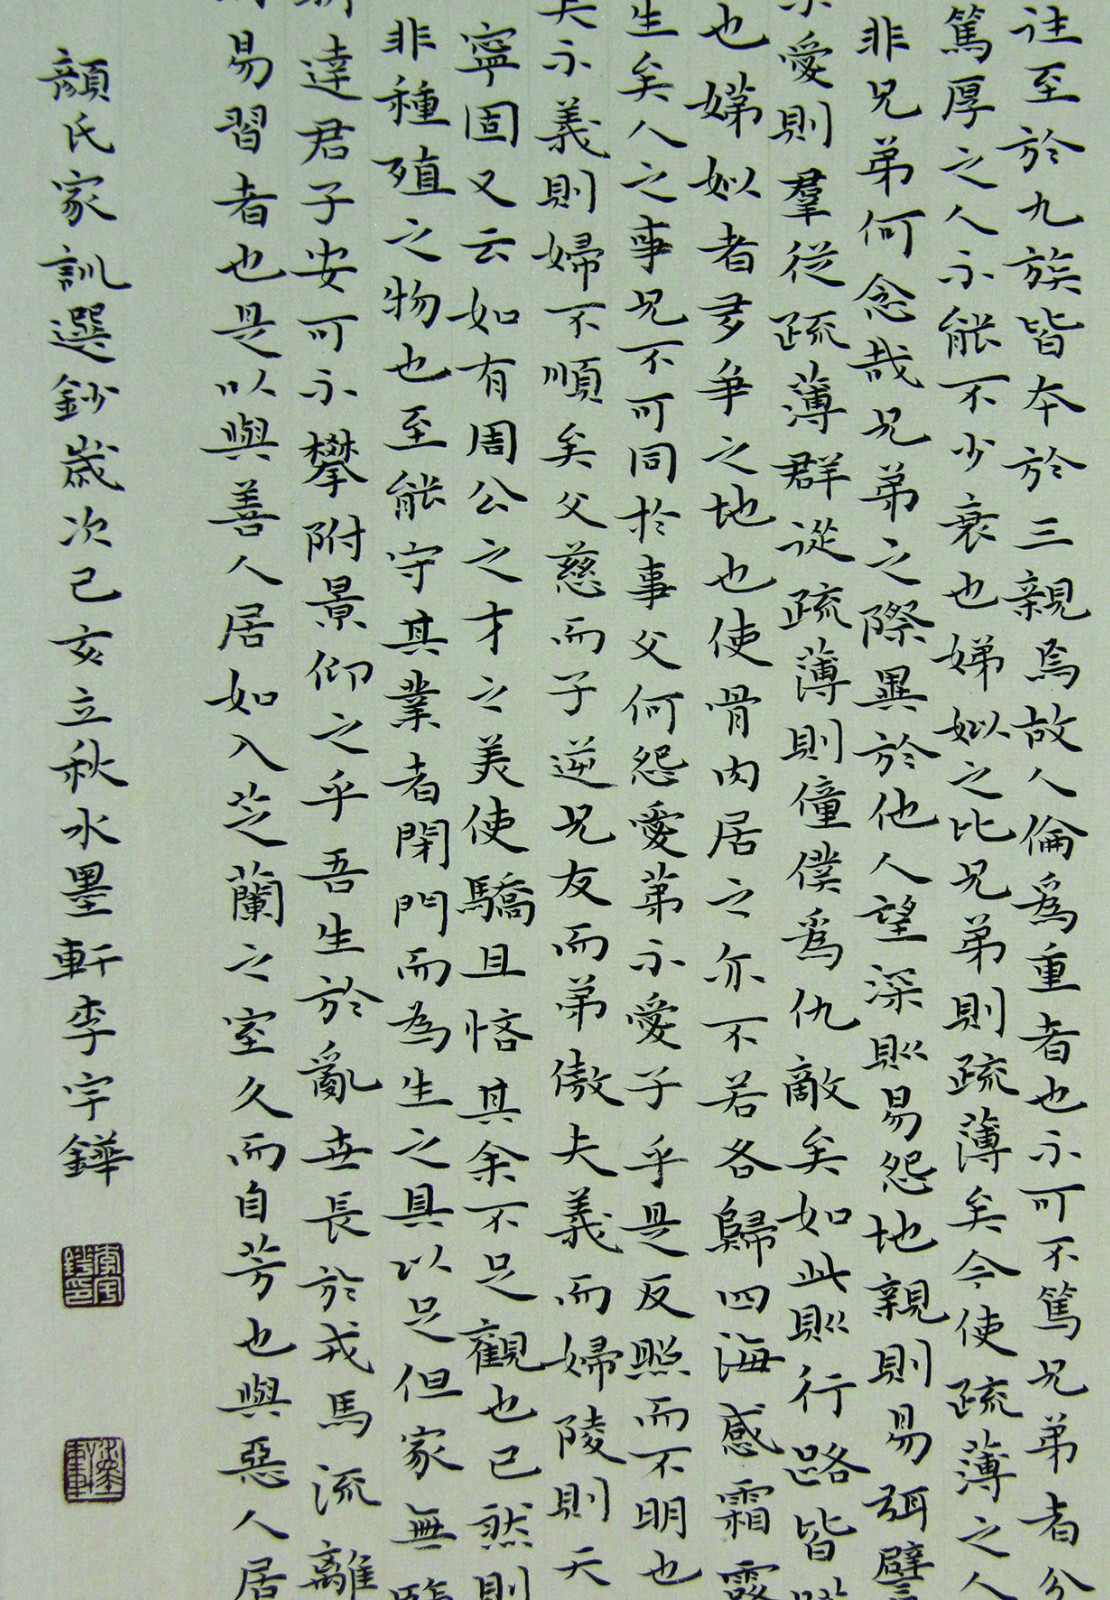 往至於九族皆本於三親焉故人倫為重者也不可不篤兄弟者分
篤厚之人不能不少衰也娣姒之比兄弟則疏薄矣今使疏薄之人
非兄弟何念哉兄弟之際異於他人望深則易怨地親則易弭譬
不愛則群從疏薄群從疏薄則僮僕為仇敵矣如此則行路皆
也娣姒者多爭之地也使骨肉居之亦不若各歸四海感霜露
生矣人之事兄不可同於事父何怨愛弟不愛子乎是反照而不明也
夫不義則婦不順矣父慈而子逆兄友而弟傲夫義而婦陵則天
寧固又云如有周公之才之美使驕且悋其余不足觀也已然則
非種殖之物也至能守其業者閉門而為生之具以足但家無鹽
達君子安可不攀附景仰之乎吾生於亂世長於戎馬流離
易習者也是以與善人居如入芝蘭之室久而自芳也與惡人居
顏氏家訓選鈔歲次己亥立秋水墨軒李宇鏵